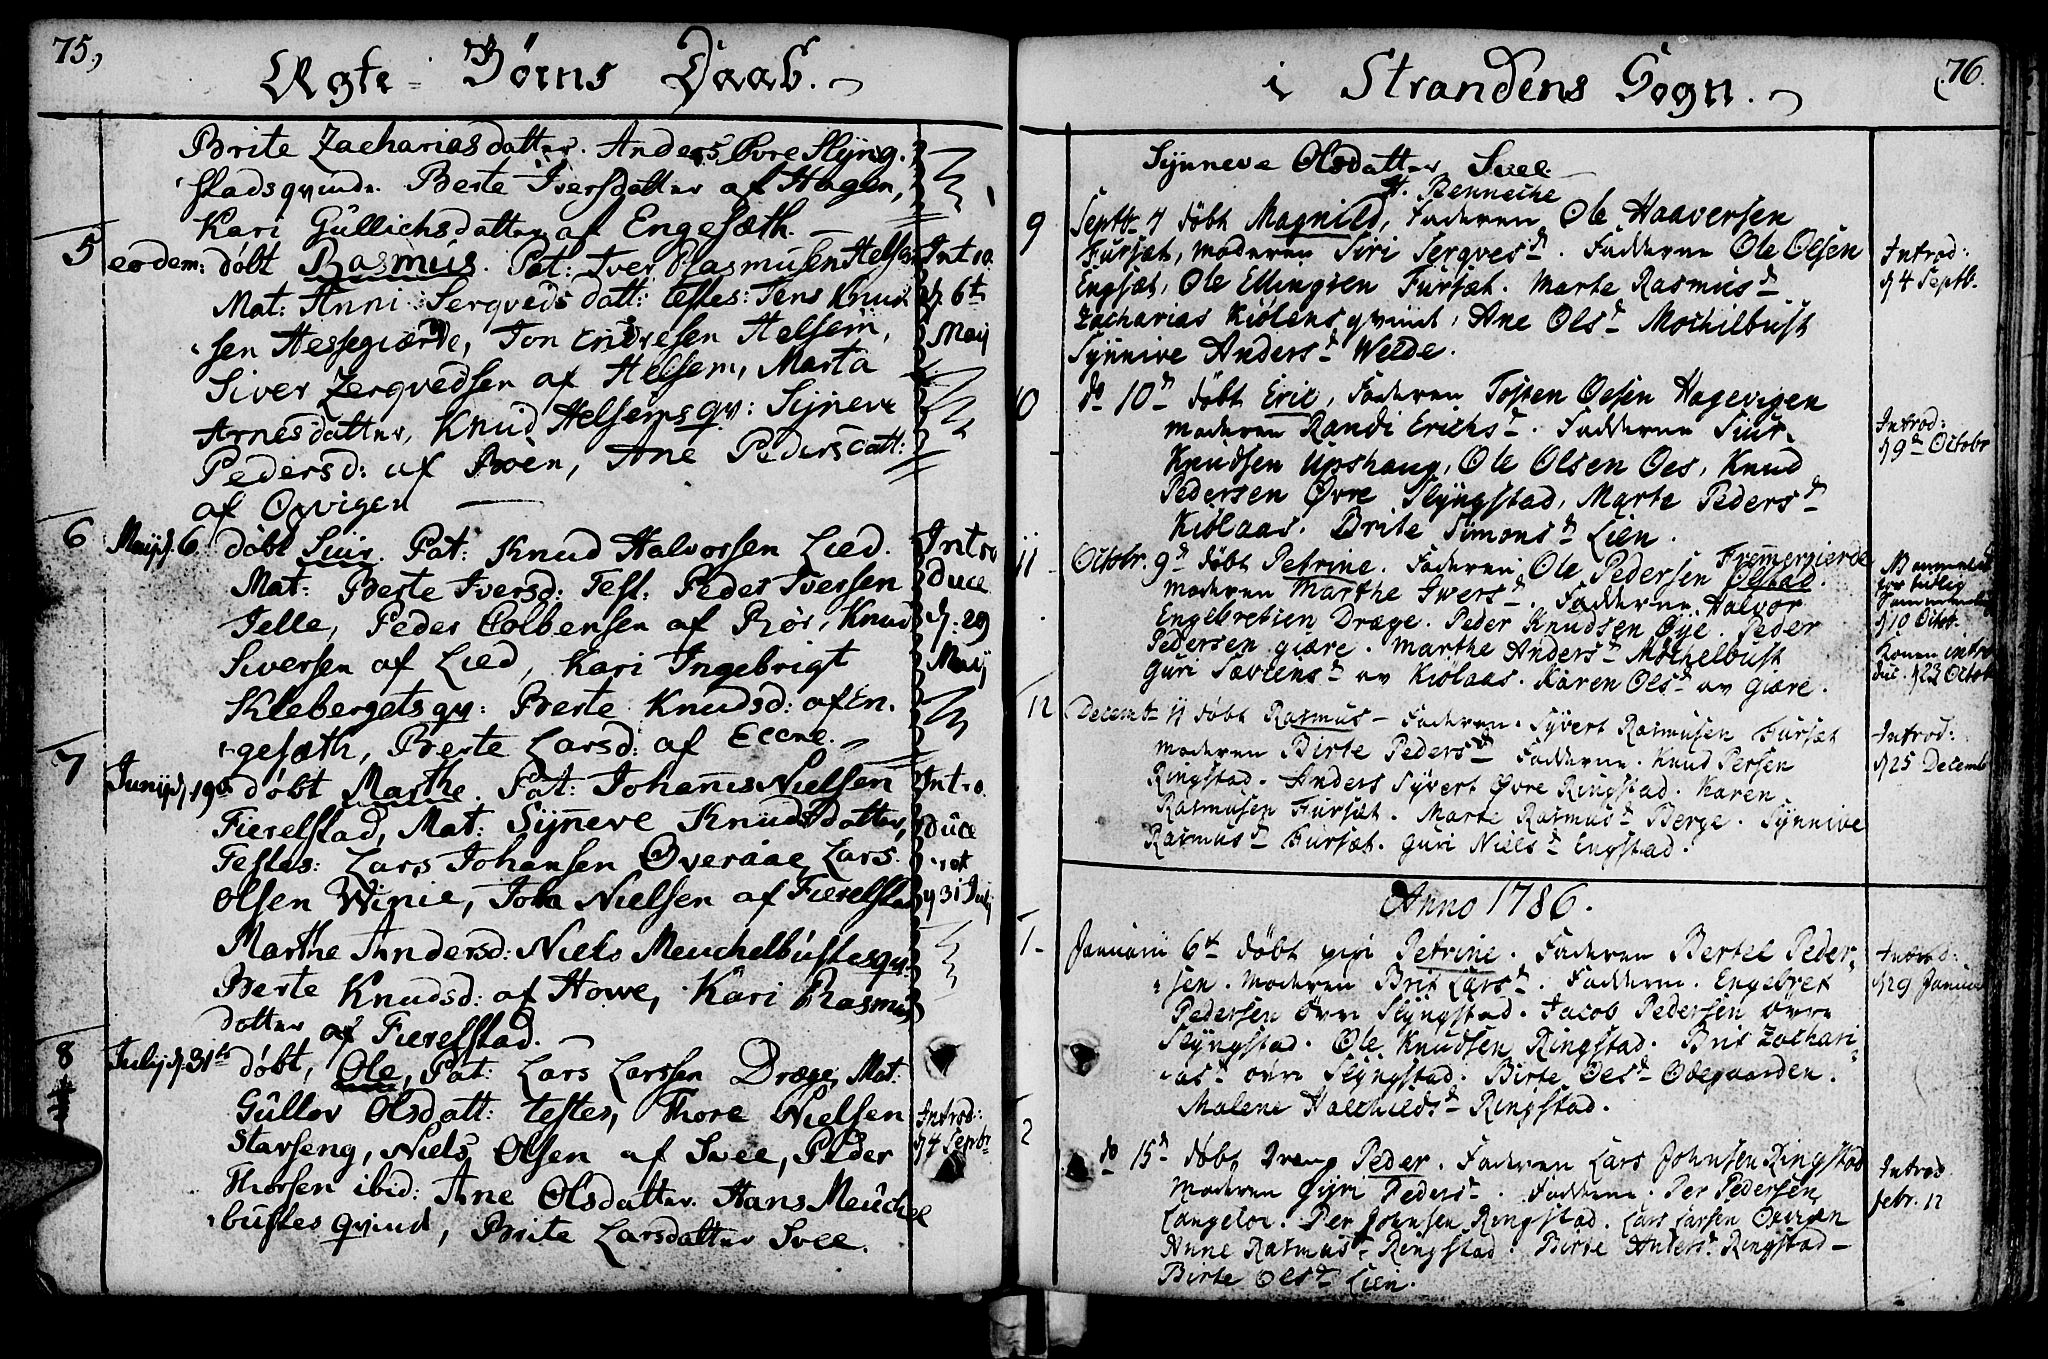 75,
Ægte-Børns Daab.
Brite Zachariasdatter. Anders Øvre Slyng-
stads qvinde. Berte Iversdatter af Hagen,
Kari Gullichsdatter af Engesæth.
5 eodem: døbt Rasmus. Pat: Iver Rasmusen Helsem Intro.
Mat: Anni Sergveds datt: testes: Jens Knud- d. 6te
sen Hessegiærde, Jon Endresen Helsem, Maij
Siver Zergvedsen af Helsem, Marta
Arnesdatter, Knud Helsems qv: Sijneve
Pedersd: af Ween, Ane Pedersdatt:
af Opvigen
6 Maij d. 6 døbt Siur. Pat: Knud Halvorsen Lied. Intro
Mat: Berte Iversd: Test: Peder Iversen duce
Jelle, Peder Colbensen af Røs, Knud d: 29
Siversen af Lied, Kari Ingebrigt Maij
Klebergets qv: Berte Knudsd: af En-
gesæth, Berte Larsd: af Eene.
7 Junij d, 19de døbt Marthe. Pat: Johannes Nielsen Intro.
Fierelstad, Mat: Sijneve Knudsdatter, duce
Testes: Lars Johansen Overaae, Lars ret
Olsen Winie, Joha Nielsen af Fierelstad d 31 Julij
Marthe Andersd: Niels Meuchelbustes qv:
Berte Knudsd: af Howe, Kari Rasmus
datter af Fierelstad.
8 Julij d. 31te døbt, Ole, Pat: Lars Larssen Dræge, Mat:
Gullov Olsdatt: testes, Thore Nielsen Introd:
Starseng, Niels Olsen af Svee, Peder d 4 Septr
Thorsen ibid: Ane Olsdatter Hans Meuchel
bustes qvind, Brite Larsdatter Svee.
i Strandens Sogn. 76.
Synneve Olsdatter Svee.
H. Benneche
9 Septbr 4 døbt Magnild, Faderen Ole Haaversen
Fursæt, moderen Siri Sergvesd. Fadderne Ole Olsen Introd:
Engsæt, Ole Ellingsen Fursæt. Marte Rasmusd d 4 Septb.
Zacharias Kiølens qvind, Ane Olsd Mochelbust
Synnive Andersd Welde.
10 do 10d døbt Eric, Faderen Tosten Oesen Hagevigen
moderen Randi Erichsd. Fadderne Siur Introd:
Knudsen Upshaug, Ole Olsen Oes, Knud d 9d Octobr
Pedersen Øvre Slyngstad, Marte Pedersd
Kiølaas. Brite Simonsd Lien.
11 Octobr. 9d døbt Petrine. Faderen Ole Pedersen Fremergierde
Ølstad.
moderen Marthe Iwersd. Fadderne Halvor
Engebretsen Dræge. Peder Knudsen Øye. Peder d 10 Octbr.
Pedersen giære. Marthe Andersd Mochelbust Konen intro
Guri Sævrensd av Kiølaas. Karen Olsd av Giære. duc. d 23 Octob
12 Decemb 11 døbt Rasmus - Faderen. Syvert Rasmusen Fursæt
moderen Birte Pedersd Fadderne. Knud Persen Introd:
Ringstad. Anders Syvert Øvre Ringstad. Karen d 25 Decemb
Rasmusen Fursæt. Marte Rasmusd Berge. Synnive
Rasmusd Fursæt. Guri Nielsd Engstad.
Anno 1786.
1- Januarii 6t døbt pigi Petrine. Faderen Bertel Peder- Introd:
sen. Moderen Brit Larsd. Fadderne. Engebret d 29 Januar
Pedersen øvre Slyngstad. Jacob Pedersen øvre
Slyngstad. Ole Knudsen Ringstad. Brit Zachari-
asd øvre Slyngstad. Birte Oesd Ødegaarden.
Malene Halchildsd Ringstad.
2 do 15d døbt Dreng Peder. Faderen Lars Johnsen Ringstad Introd
Moderen Gyri Pedersd. Fadderne. Per Pedersen febr. 12
Langeloe. Per Johnsen Ringstad. Lars Larsen Overæn
Anne Rasmusd Ringstad. Birte Andersd Ringstad-
Birte Olsd Lien.